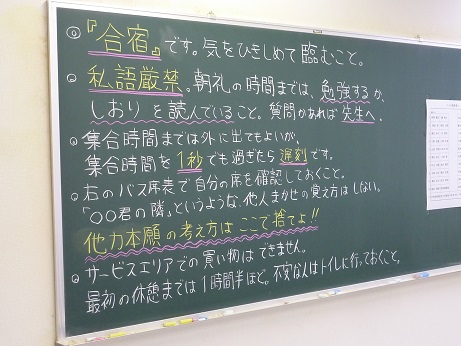 ◎『合宿』です。気をひきしめて臨むこと。
・私語厳禁。朝礼の時間までは、勉強するか、
しおりを読んでいること。質問があれば先生へ。
・集合時間までは外に出てもよいが、
集合時間を1秒でも過ぎたら遅刻です。
・右のバス座席表で自分の席を確認しておくこと。
「○○君の隣」というような、他人まかせの覚え方はしない。
他力本願の考え方はここで捨てよ!!
・サービスエリアでの買い物はできません。
最初の休憩までは1時間半ほど。不安な人はトイレに行っておくこと。